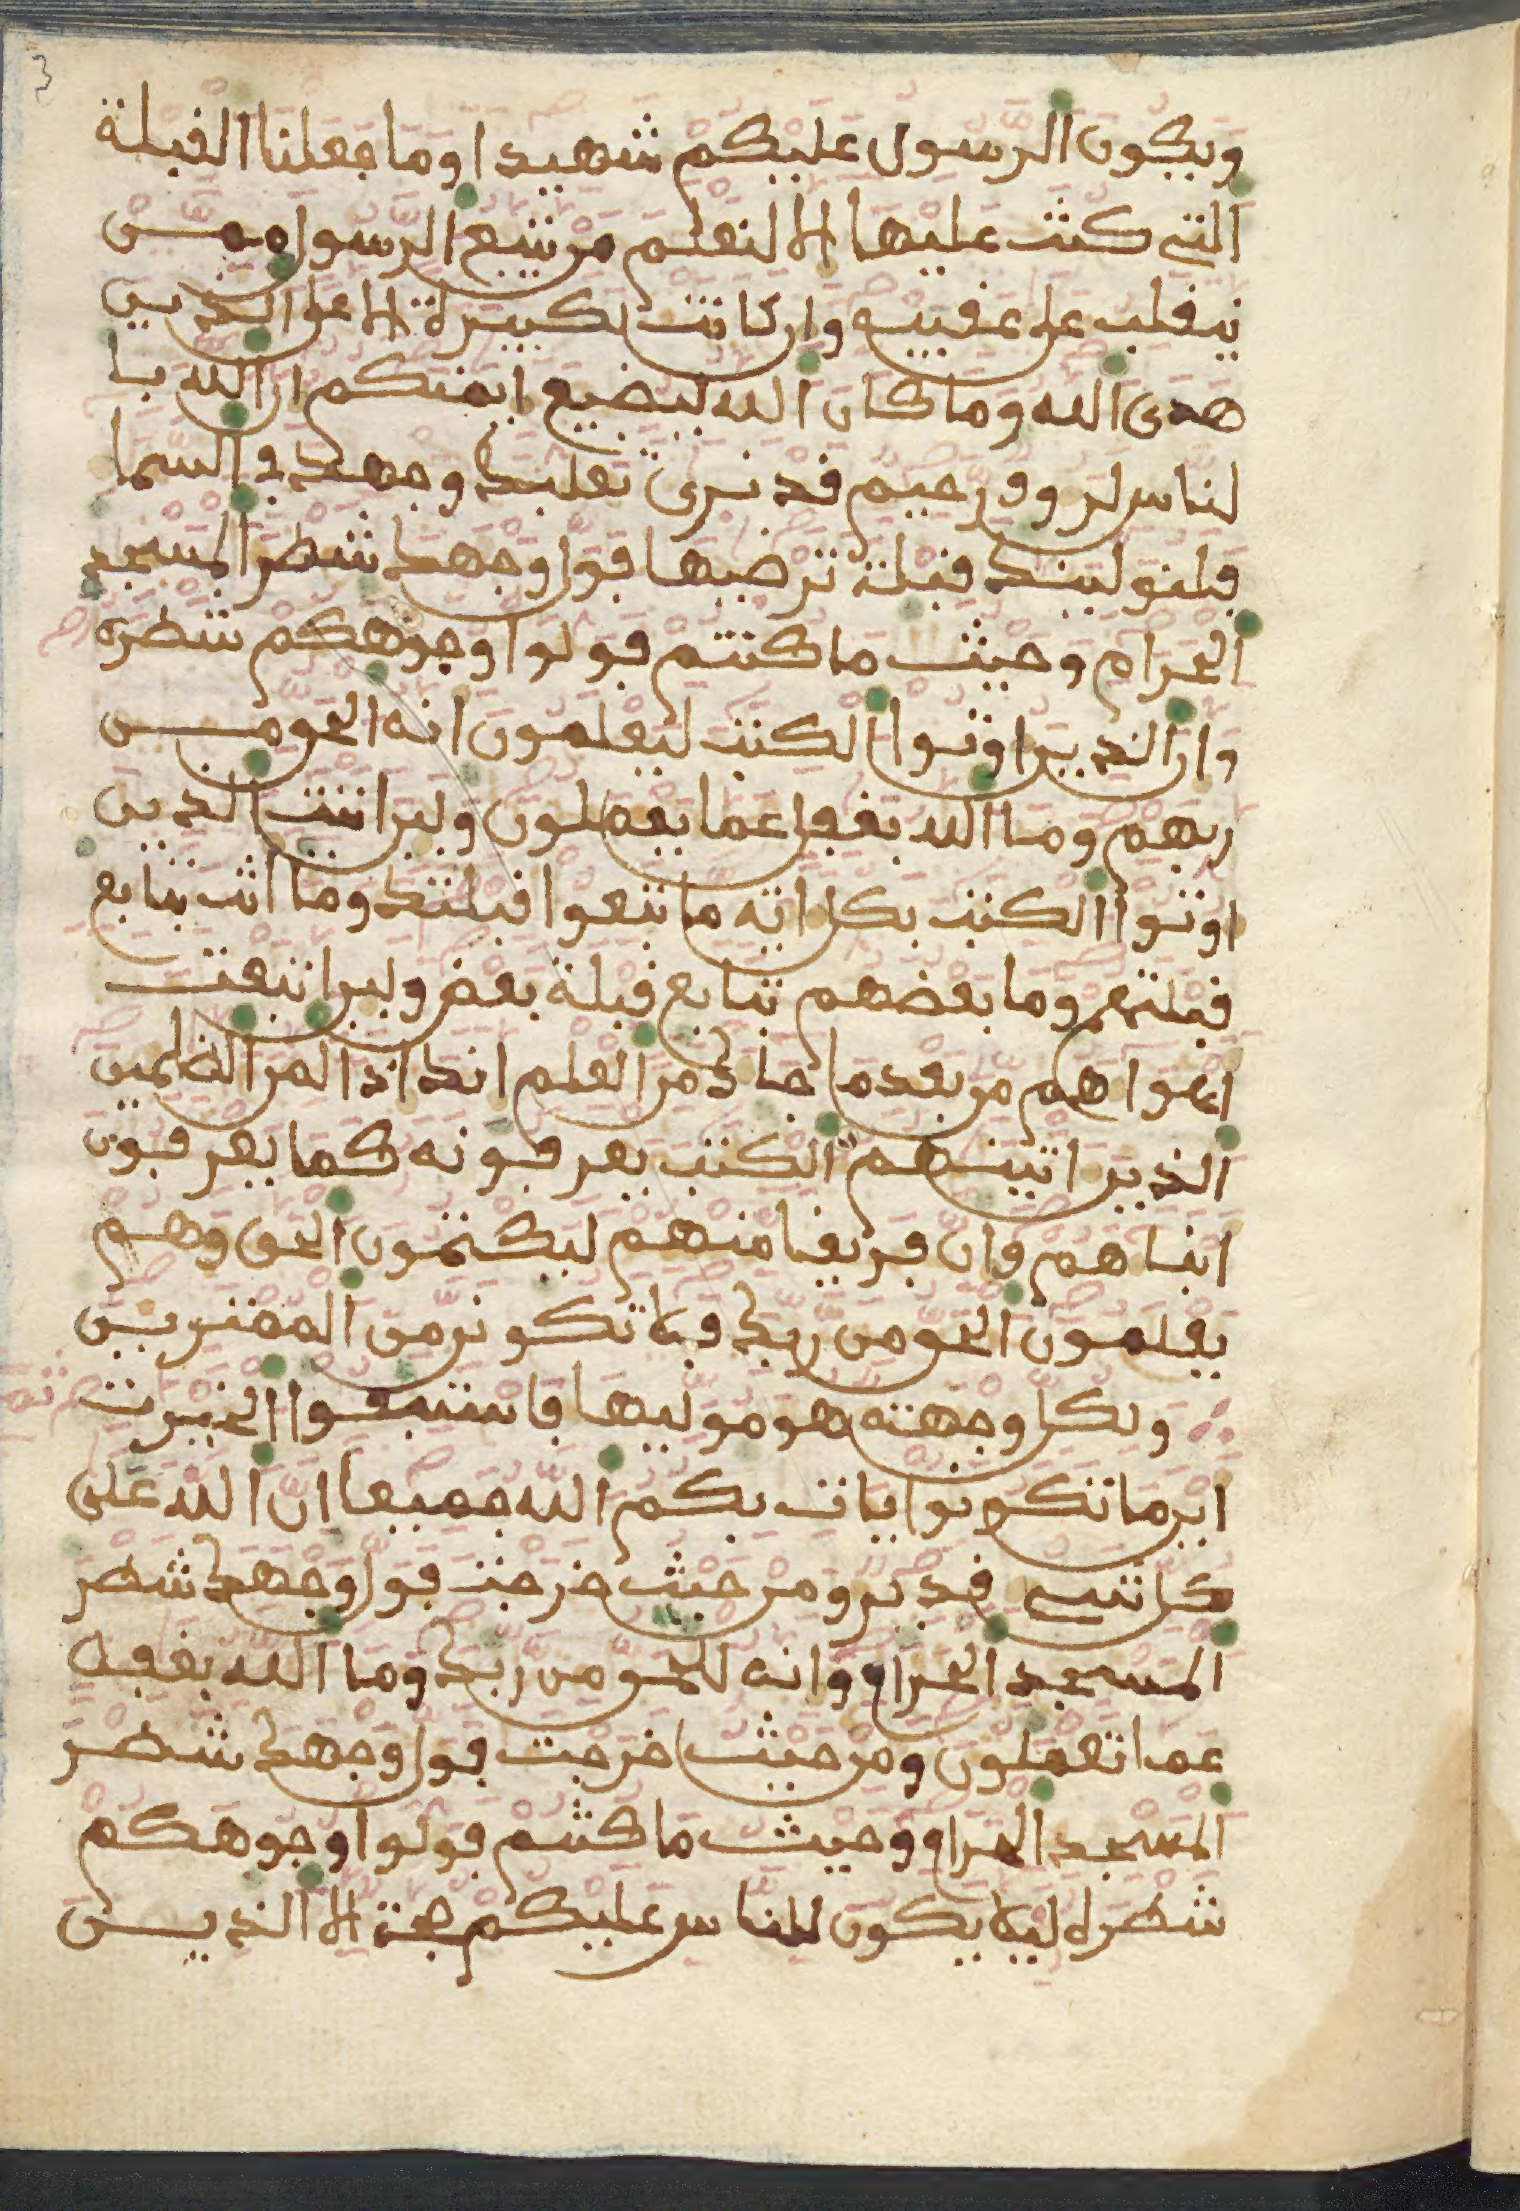 3
ويكون الرسول عليكم شهيدا وما جعلنا القبلة
التي كنت عليها الا لنعلم من يتبع الرسول ممن
ينقلب على عقبيه وان كانت لكبيرة الا على الذين
هدى الله وما كان الله ليضيع ايمنكم ان الله با
لناس لروف رحيم قد نرى تقلب وجهك في السما
فلنولينك قبلة ترضيها فول وجهك شطر المسجد
الحرام وحيث ما كنتم فولوا وجوهكم شطره
وان الذين اوتوا الكتب ليعلمون انه الحق من
ربهم وما الله بغفل عما يعملون ولين اتيت الذين
اوتوا الكتب بكل اية ما تبعوا قبلتك وما انت بتابع
قبلتهم وما بعضهم بتابع قبلة بعض ولين اتبعت
اهواهم من بعد ما جاك من العلم انك اذا لمن الظلمين
الذين اتينهم الكتب يعرفونه كما يعرفون
ابناهم وان فريقا منهم ليكتمون الحق وهم
يعلمون الحق من ربك فلا تكونن من الممترين
ولكل وجهة هو موليها فاستبقوا الخيرت
اين ما تكونوا يات بكم الله جميعا ان الله على
كل شي قدير ومن حيث خرجت فول وجهك شطر
المسجد الحرام وانه للحق من ربك وما الله بغفل
عما تعملون ومن حيث خرجت فول وجهك شطر
المسجد الحرام وحيث ما كنتم فولوا وجوهكم
شطره ليلا يكون للناس عليكم حجة الا الذين